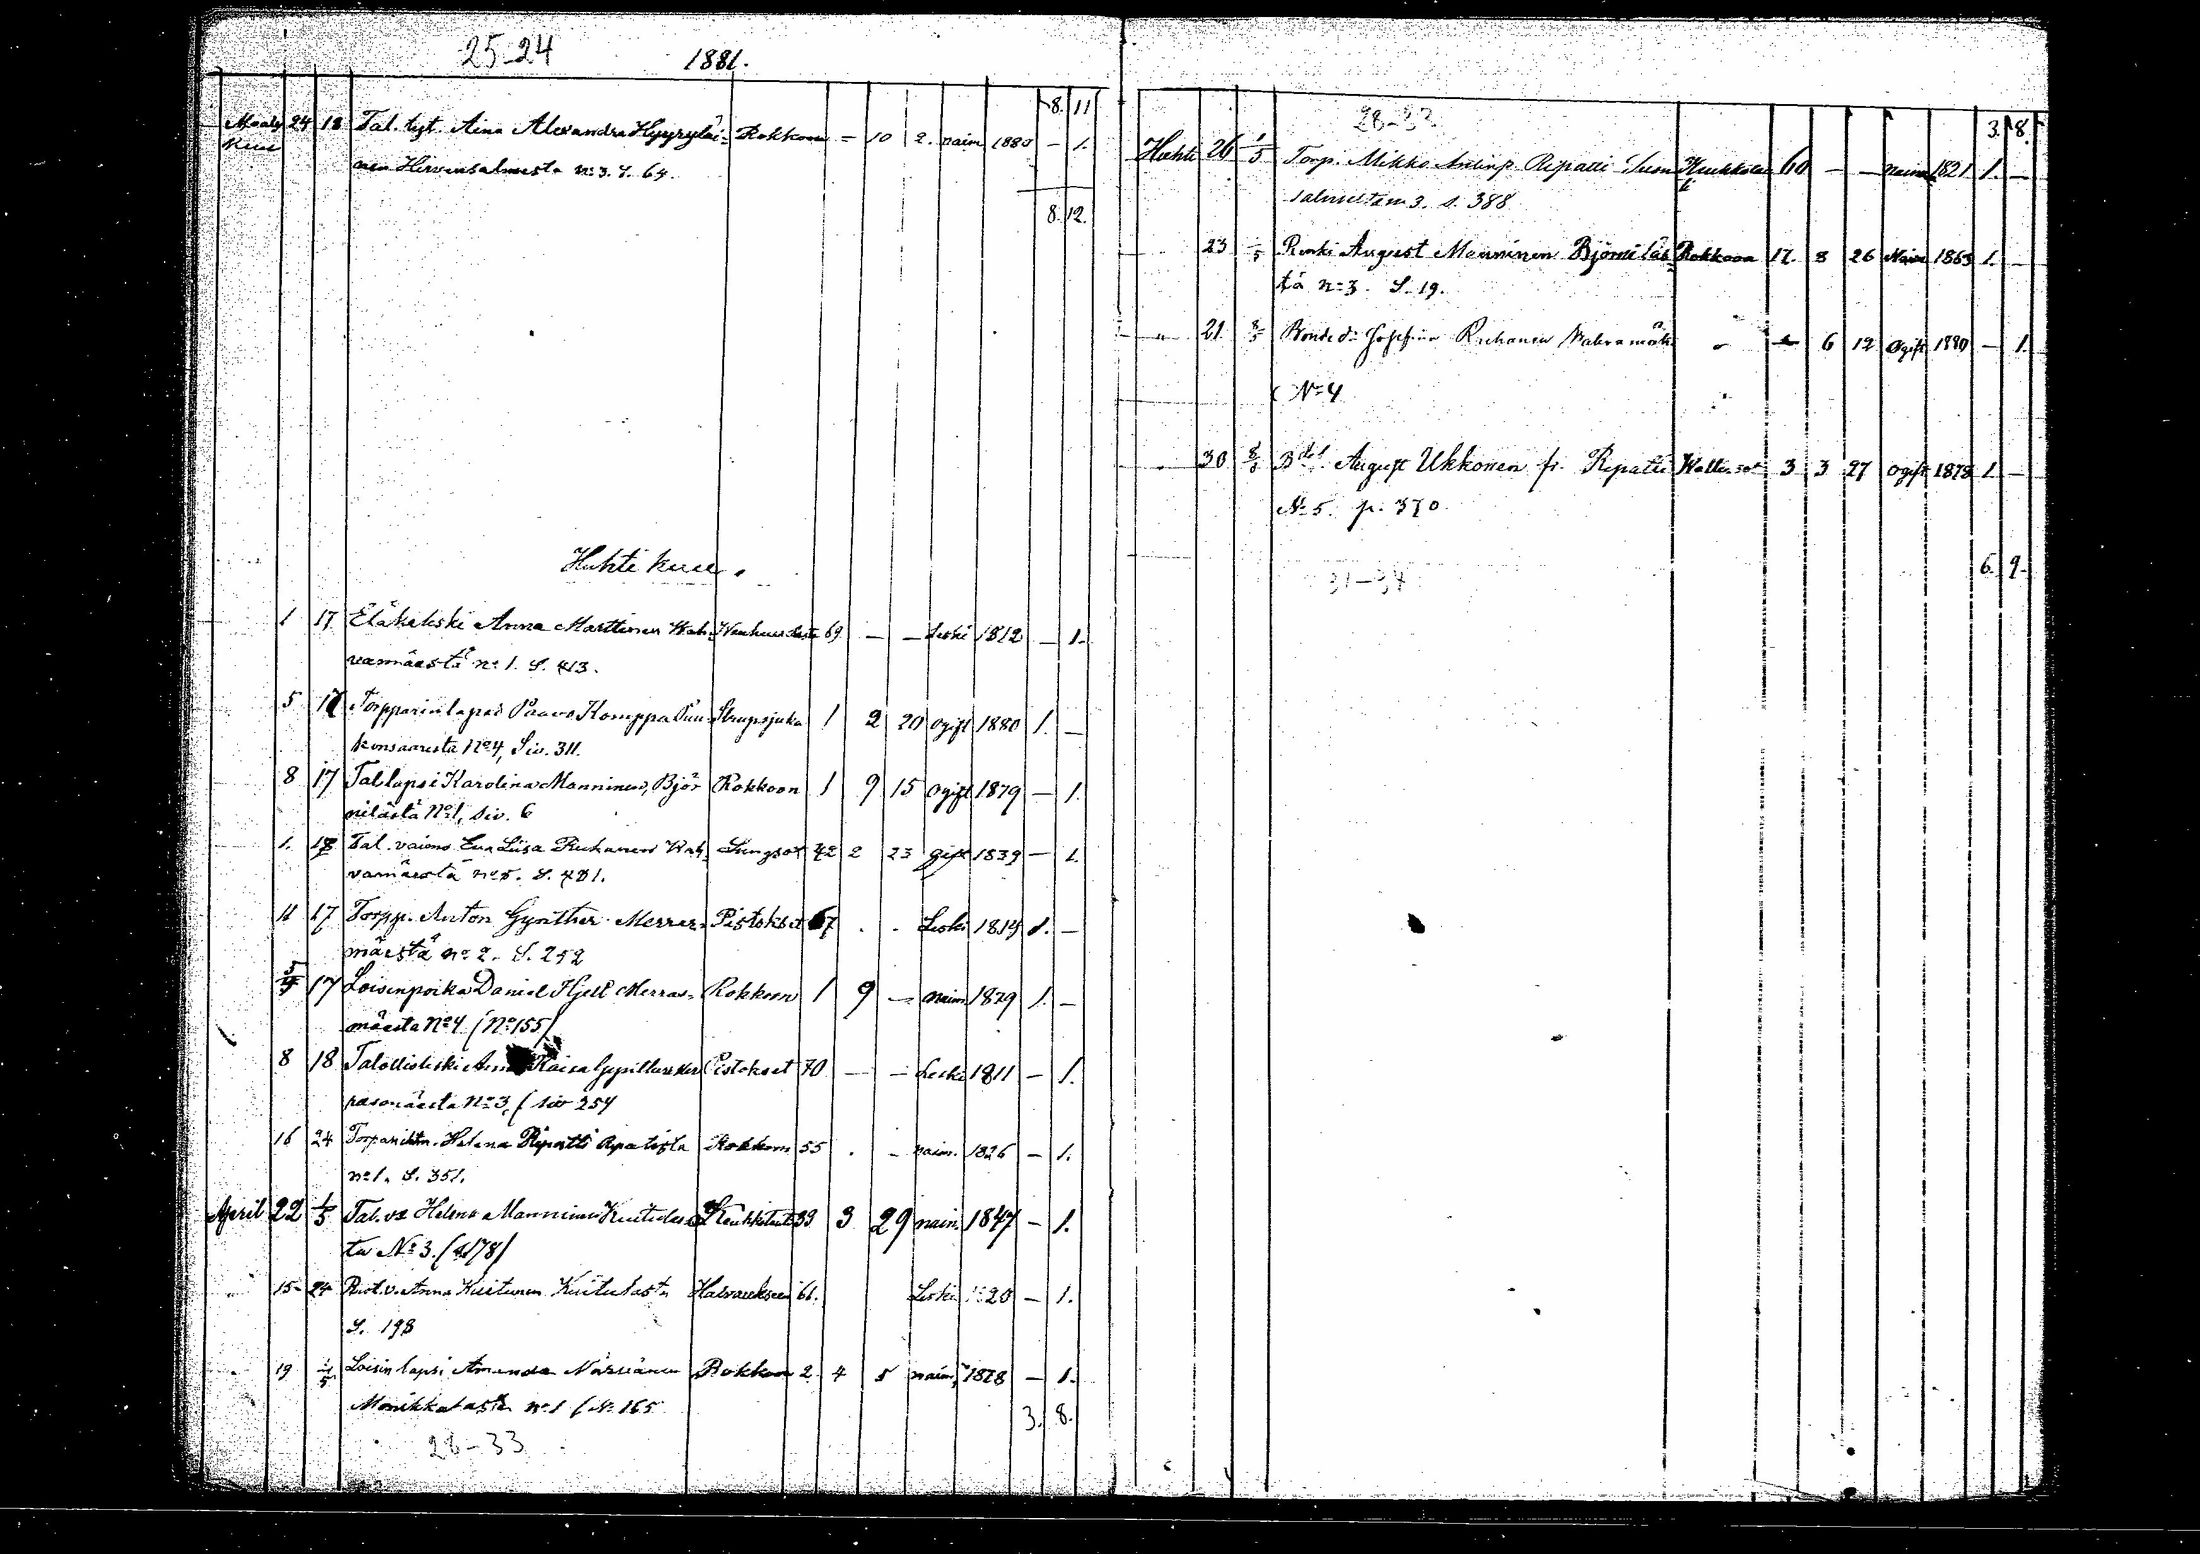 25-24
1881.
8. 11
Maalis 24 18 Tal. tyt. Aina Alexandra Hyyryläi- Rokkoon - 10 2. naim 1880 - 1.
kuu nen Hirvensalmesta no 3. S. 64.
8. 12.
Huhti kuu.
1 17 Anna Marttinen 69 - - Leski 1812 - 1.
no 1. S. 413.
5 17 Torpparin lapsi Paavo Komppa Puu- Strupsjuka 1 2 20 ogift 1880 1. -
konsaaresta No 4, Siv. 311.
8 17 Tal lapsi Karolina Manninen, Björ- Rokkoon 1 9 15 ogift 1879 - 1.
nilästä No 1, siv. 6
1. 18 Tal. vaimo Eva Liisa Ruhanen Wah- Lungsot 42 2 23 gift 1839 - 1.
vamäestä no 5. S. 481.
11 17 Torpp. Anton Gynther Merras- Pistokset 67 . . Leski 1814 1. -
mäestä no 2. S. 252
5/4 17 Loisenpoika Daniel Hjelt Merras- Rokkoon 1 9 - naim 1879 1. -
mäesta No 4 (No 155)
8 18 Kaisa Pistokset 70 - - Leski 1811 - 1.
No 3, (siv 254
16 24 Helena Ripatti Ripatista Rokkoon 55 . - naim. 1826 - 1.
no 1. S. 351.
April 22 1/5 Tal. va Helena Manninen Kuitulas- 39 3 29 naim. 1847 - 1.
ta No 3. (s. 178)
15 24 Anna Kuitunen Kuitulasta Halvaukseen 61. Leski 1820 - 1.
S. 198
19 1/5 Loisin lapsi Amanda Närviänen Rokkoon 2 4 5 naim. 1878 - 1.
Monikkalasta no 1 (No 165
3. 8.
28-33
28-33
3. 8.
Huhti 26 1/5 Torp. Mikko Antinp. Ripatti Suon- 60 - - naim 1821 1. -
salmelta no 3. s. 388
23 1/5 Renki August Manninen Björniläs- Rokkoon 17. 8 26 Naim 1863 1. -
tä no 3. S. 19.
" 21 8/5 Bonde d. Josefina Ruhanen Wahvamäki " - 6 12 Ogift 1880 - 1.
No 4
" 30 8/5 August Ukkonen fr. Ripatti 3 3 27 ogift 1878 1. -
No 5. p. 370.
6. 9.
31-34